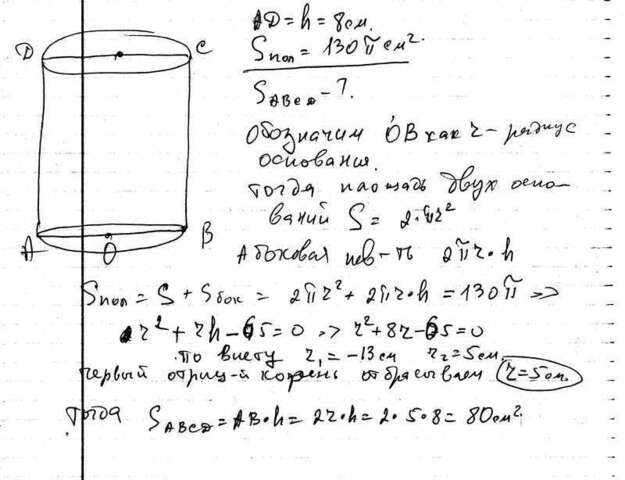 D C
A O B
AD = h = 8см.
Sпол = 130π см².
SABCD - ?.
Обозначим OB как r - радиус
основания.
Тогда площадь двух осно-
ваний S = 2·πr²
А боковая пов-ть 2πr·h
Sпол = S + Sбок = 2πr² + 2πr·h = 130π =>
r² + rh - 65 = 0 => r² + 8r - 65 = 0
по виету r₁ = -13см r₂ = 5см.
первый отриц-й корень отбрасываем r = 5см.
Тогда SABCD = AB·h = 2r·h = 2·5·8 = 80см².